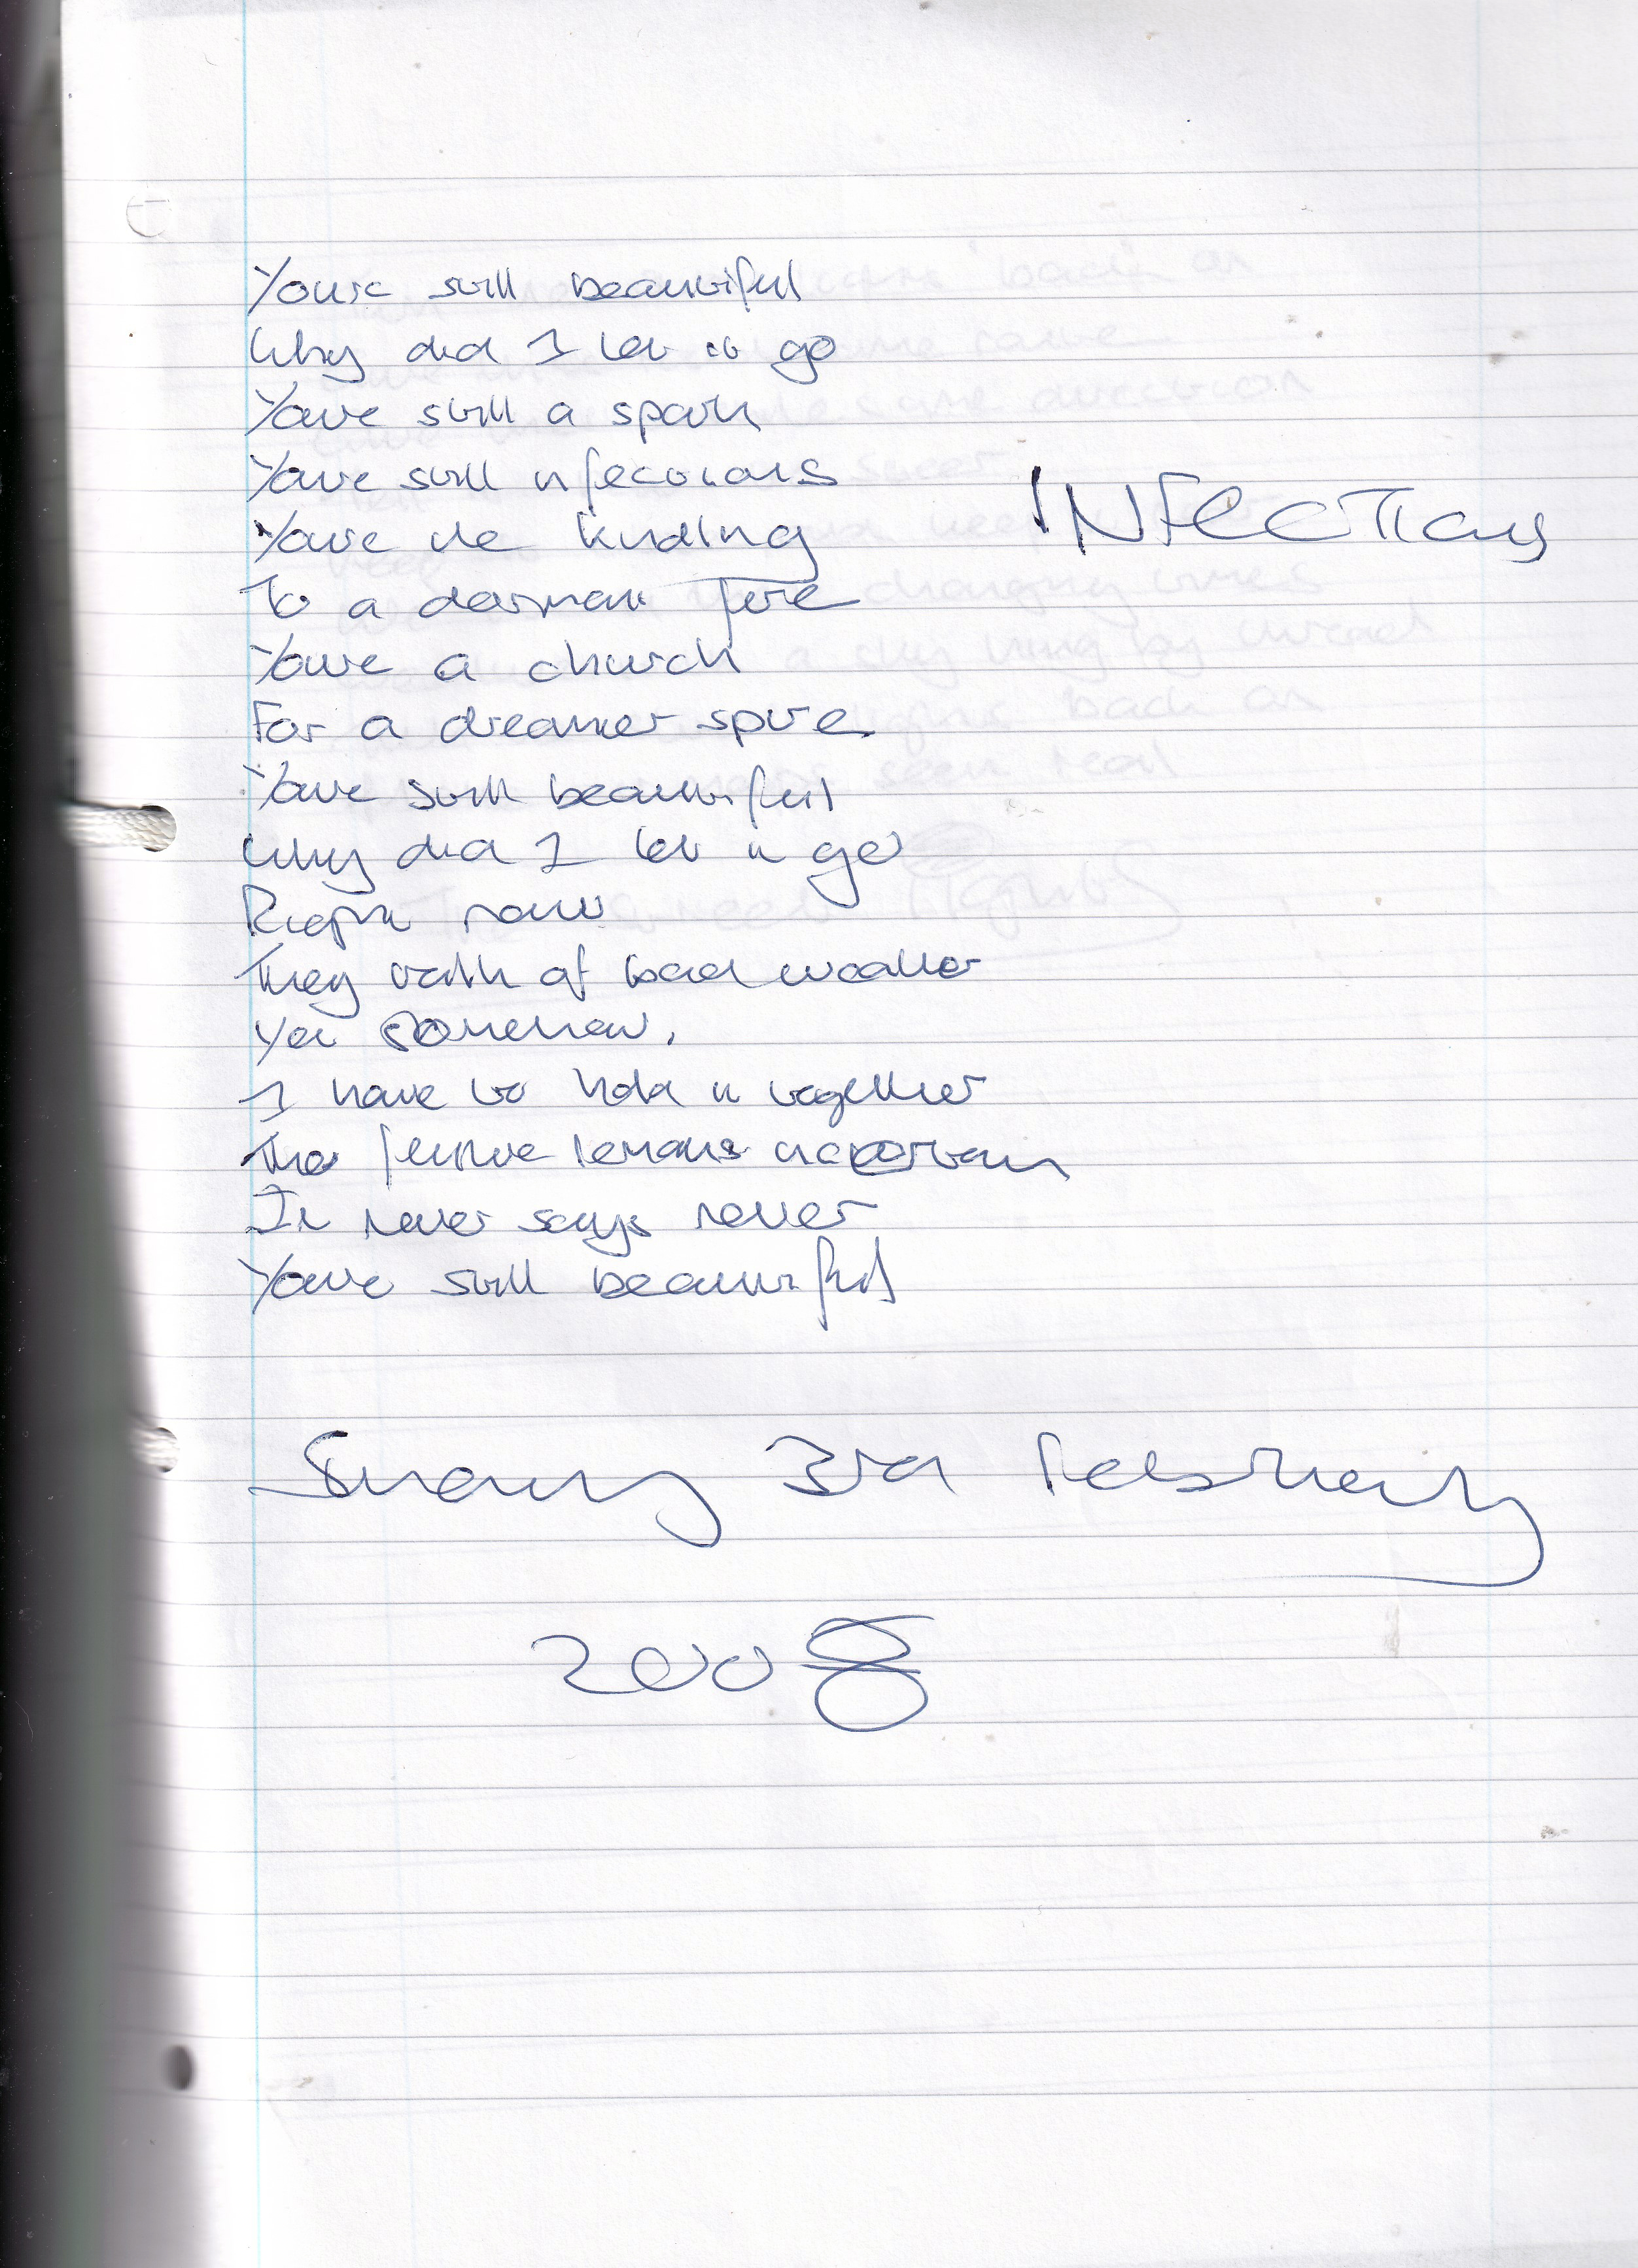 You're still beautiful
Why did I let it go
You're still a spark
You're still infectious
INFECTIOUS
You're the kindling
To a dormant fire
You're a church
For a dreamer spire
You're still beautiful
Why did I let it go
Right now
They talk of bad weather
Yet somehow,
I have to hold it together
The future remains uncertain
It never says never
You're still beautiful
Sunday 3rd February
2008